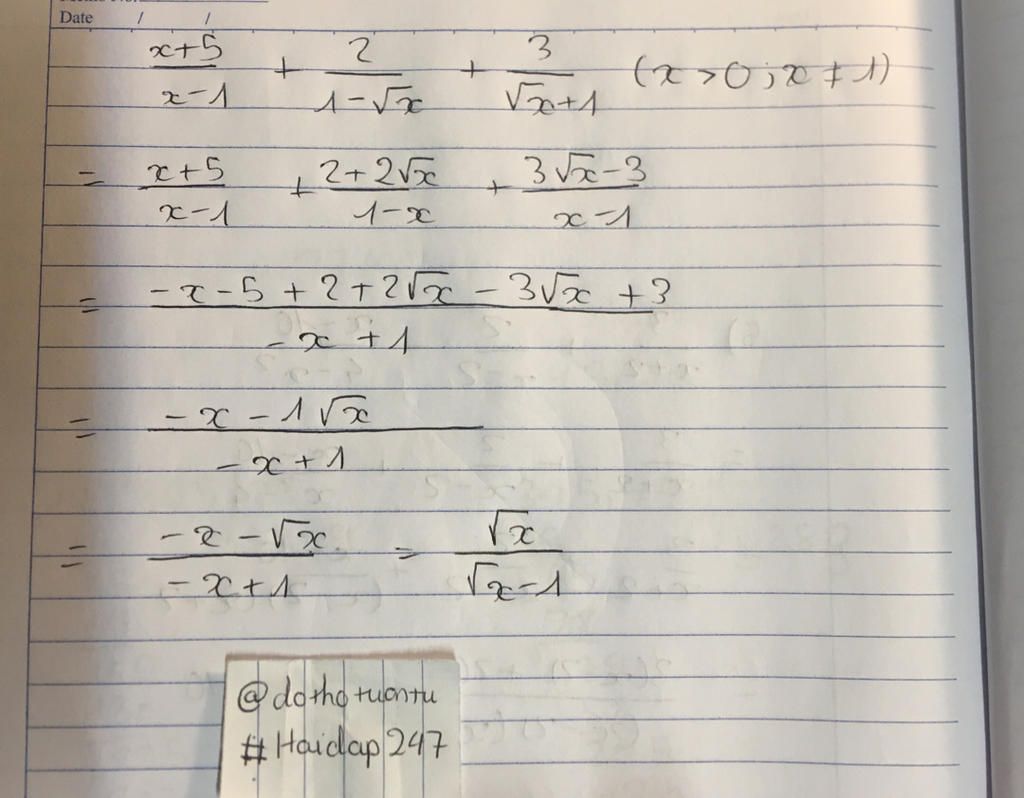 Date / /
x+5/x-1 + 2/1-√x + 3/√x+1 (x>0; x≠1)
= x+5/x-1 + 2+2√x/1-x + 3√x-3/x-1
= -x-5+2+2√x-3√x+3/-x+1
= -x-1√x/-x+1
= -x-√x/-x+1 = √x/√x-1
@dothotuontu
#Hoidap247